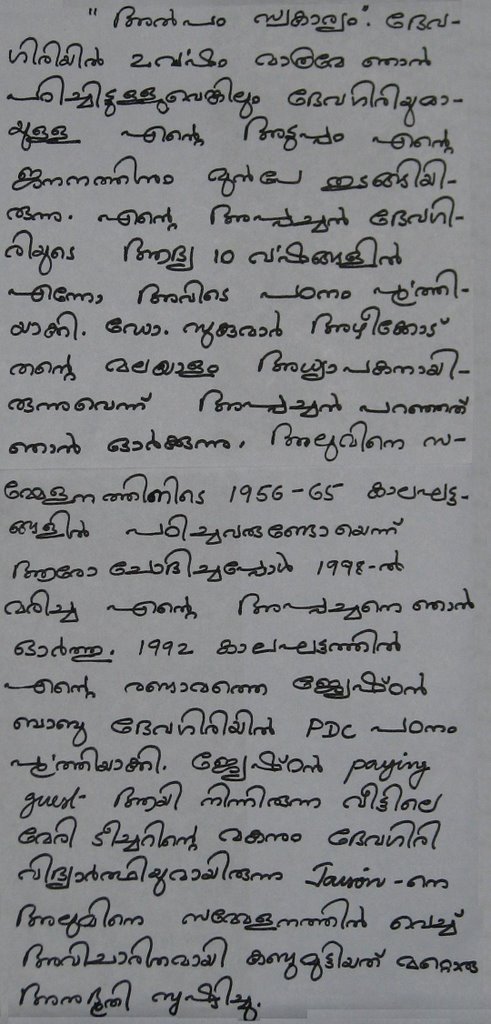 " അൽപം സ്വകാര്യം". ദേവ-
ഗിരിയിൽ 2 വർഷം മാത്രമേ ഞാൻ
പഠിച്ചിട്ടുള്ളുവെങ്കിലും ദേവഗിരിയുമാ-
യുള്ള എന്റെ അടുപ്പം എന്റെ
ജനനത്തിനും മുൻപേ തുടങ്ങിയി-
രുന്നു. എന്റെ അപ്പച്ചൻ ദേവഗി-
രിയുടെ ആദ്യ 10 വർഷങ്ങളിൽ
എന്നോ, അവിടെ പഠനം പൂർത്തി-
യാക്കി. ഡോ. സുകുമാർ അഴീക്കോട്
തന്റെ മലയാളം അധ്യാപകനായി-
രുന്നുവെന്ന് അപ്പച്ചൻ പറഞ്ഞത്
ഞാൻ ഓർക്കുന്നു. അലുമിനെ സ-
മ്മേളനത്തിനിടെ 1956-65 കാലഘട്ട-
ങ്ങളിൽ പഠിച്ചവരുണ്ടോയെന്ന്
ആരോ ചോദിച്ചപ്പോൾ 1998-ൽ
മരിച്ച എന്റെ അപ്പച്ചനെ ഞാൻ
ഓർത്തു. 1992 കാലഘട്ടത്തിൽ
എന്റെ രണ്ടാമത്തെ ജ്യേഷ്ഠൻ
ബാബു ദേവഗിരിയിൽ PDC പഠനം
പൂർത്തിയാക്കി. ജ്യേഷ്ഠൻ paying
guest ആയി നിന്നിരുന്ന വീട്ടിലെ
മേരി ടീച്ചറിന്റെ മകനും ദേവഗിരി
വിദ്യാർത്ഥിയുമായിരുന്ന Jaison-നെ
അലുമിനെ സമ്മേളനത്തിൽ വെച്ച്
അവിചാരിതമായി കണ്ടുമുട്ടിയത് മറ്റൊരു
അനുഭൂതി സൃഷ്ടിച്ചു.